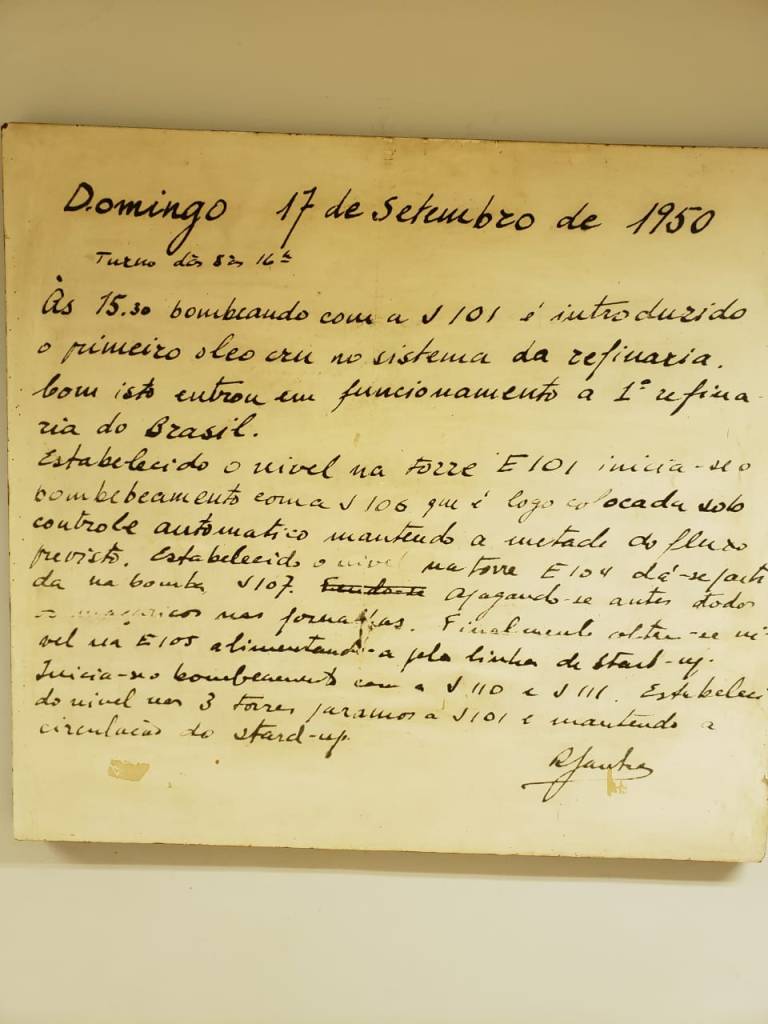 Domingo 17 de Setembro de 1950
Turno das 8 às 16hs
Às 15.30 bombeando com a J 101 é introduzido
o primeiro oleo cru no sistema da refinaria.
Com isto entrou em funcionamento a 1ª refina-
ria do Brasil.
Estabelecido o nivel na torre E101 inicia-se o
bombebeamento com a J 106 que é logo colocada sob
controle automatico mantendo a metade do fluxo
previsto. Estabelecido o nivel na torre E104 dá-se parti
da na bomba J107. apagando-se antes todos
os maçaricos nas fornalhas. Finalmente obtem-se ni-
vel na E105 alimentando-a pela linha de start-up.
Inicia-se o bombeamento com a J 110 e J 111. Estabeleci
do nivel nas 3 torres paramos a J101 e mantendo a
circulação do stard-up.